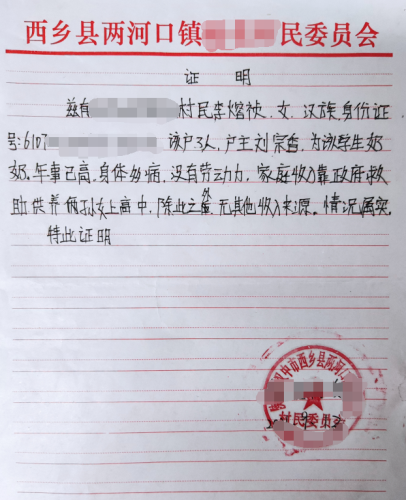 西乡县两河口镇 民委员会
证 明
兹有 村民李熠 女、汉族、身份证
号:6107 该户3人,户主刘宗香,为该学生奶
奶,年事已高,身体多病,没有劳动力,家庭收入靠政府救
助供养俩孙女上高中,除此之外,无其他收入来源。情况属实
特此证明
汉中市西乡县两河
村民委员会